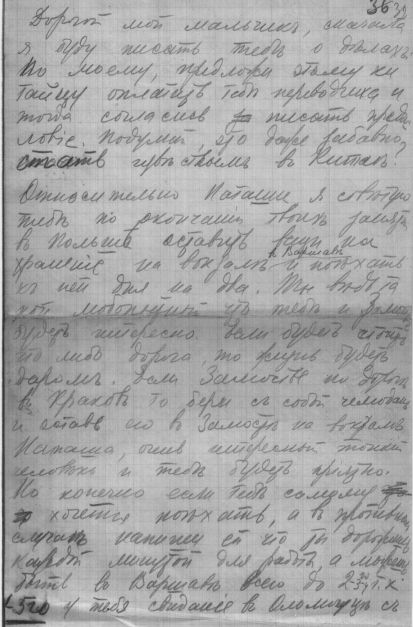 36
Дорогой мой мальчикъ, сначала
я буду писать тебѣ о дѣлахъ.
По моему, предложи этому ки
тайцу оплатить тебѣ переводчика и
тогда согласись писать преди
ловіе. Подумай, это даже забавно
стать извѣстнымъ въ Китаѣ!
Относительно Наташи я совѣтую
тебѣ по окончаніи твоихъ занятій
въ Польшѣ оставить вещи на
храненіе на вокзалѣ въ Варшавѣ и поѣхать
къ ней дня на два. Ты вѣдь та
кой любопытный что тебѣ и Замостье
будетъ интересно. Если будетъ стоить
что либо дорога, то жизнь будетъ
даромъ. Если Замостье по дорогѣ
въ Краковъ то бери съ собой чемоданъ
и оставь его въ Замостьѣ на вокзалѣ
Наташа, очень интересный тонкій
человѣкъ и тебѣ будетъ пріятно.
Но конечно если тебѣ самому
хочется поѣхать, а въ противномъ
случаѣ напиши ей что ты дорожишь
каждой минутой для работы, а можешь
быть въ Варшавѣ всего до 2
у тебя свиданіе въ Оломоуцѣ съ